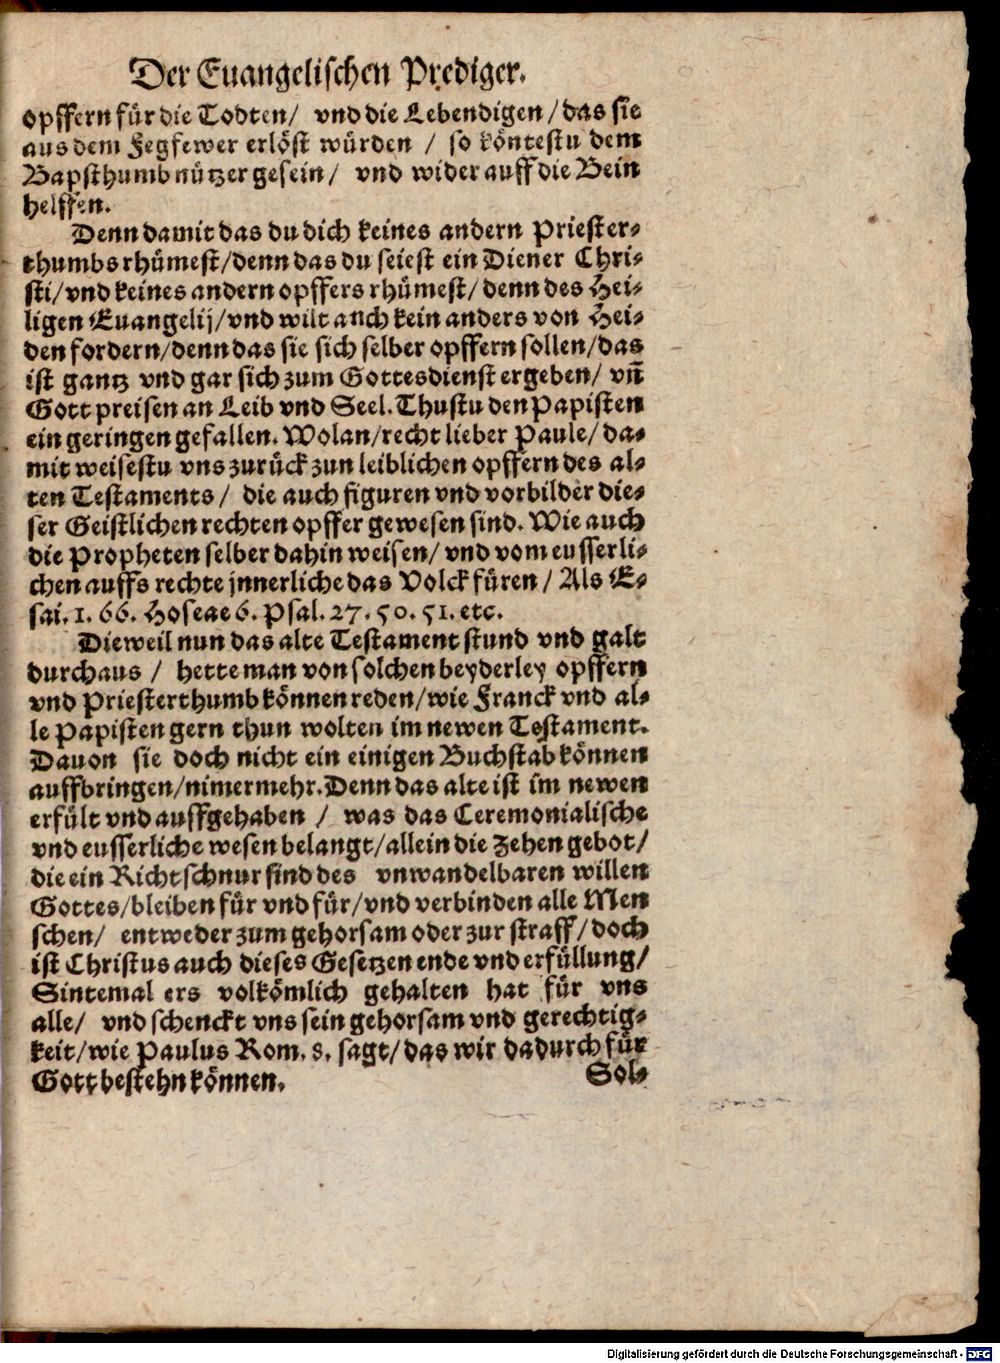 Der Euangelischen Prediger.
opffern für die Todten/ vnd die Lebendigen/das sie
aus dem Fegfewer erlöst würden / so köntestu dem
Bapsthumb nützer gesein/ vnd wider auff die Bein
helffen.
Denn damit das du dich keines andern Priester⸗
thumbs rhümest/denn das du seiest ein Diener Chri⸗
sti/vnd keines andern opffers rhümest/denn des Hei⸗
ligen Euangelij/vnd wilt auch kein anders von Hei⸗
den fordern/denn das sie sich selber opffern sollen/das
ist gantz vnd gar sich zum Gottesdienst ergeben/ vnñ
Gott preisen an Leib vnd Seel. Thustu den Papisten
ein geringen gefallen. Wolan/recht lieber Paule/da⸗
mit weisestu vns zurück zun leiblichen opffern des al⸗
ten Testaments/ die auch figuren vnd vorbilder die⸗
ser Geistlichen rechten opffer gewesen sind. Wie auch
die Propheten selber dahin weisen/vnd vom eusserli⸗
chen auffs rechte jnnerliche das Volck füren/ Als E⸗
sai. 1. 66. Hoseae 6. Psal. 27. 50. 51. etc.
Dieweil nun das alte Testament stund vnd galt
durchaus / hette man von solchen beyderley opffern
vnd Priesterthumb können reden/wie Franck vnd al⸗
le Papisten gern thun wolten im newen Testament.
Dauon sie doch nicht ein einigen Buchstab können
auffbringen/nimermehr. Denn das alte ist im newen
erfült vnd auffgehaben / was das Ceremonialische
vnd eusserliche wesen belangt/allein die Zehen gebot/
die ein Richtschnur sind des vnwandelbaren willen
Gottes/bleiben für vnd für/vnd verbinden alle Men
schen/ entweder zum gehorsam oder zur straff/doch
ist Christus auch dieses Gesetzen ende vnd erfüllung/
Sintemal ers volkömlich gehalten hat für vns
alle/ vnd schenckt vns sein gehorsam vnd gerechtig⸗
keit/wie Paulus Rom. 8. sagt/das wir dadurch für
Gott bestehn können.
Sol⸗
Digitalisierung gefördert durch die Deutsche Forschungsgemeinschaft - DFG